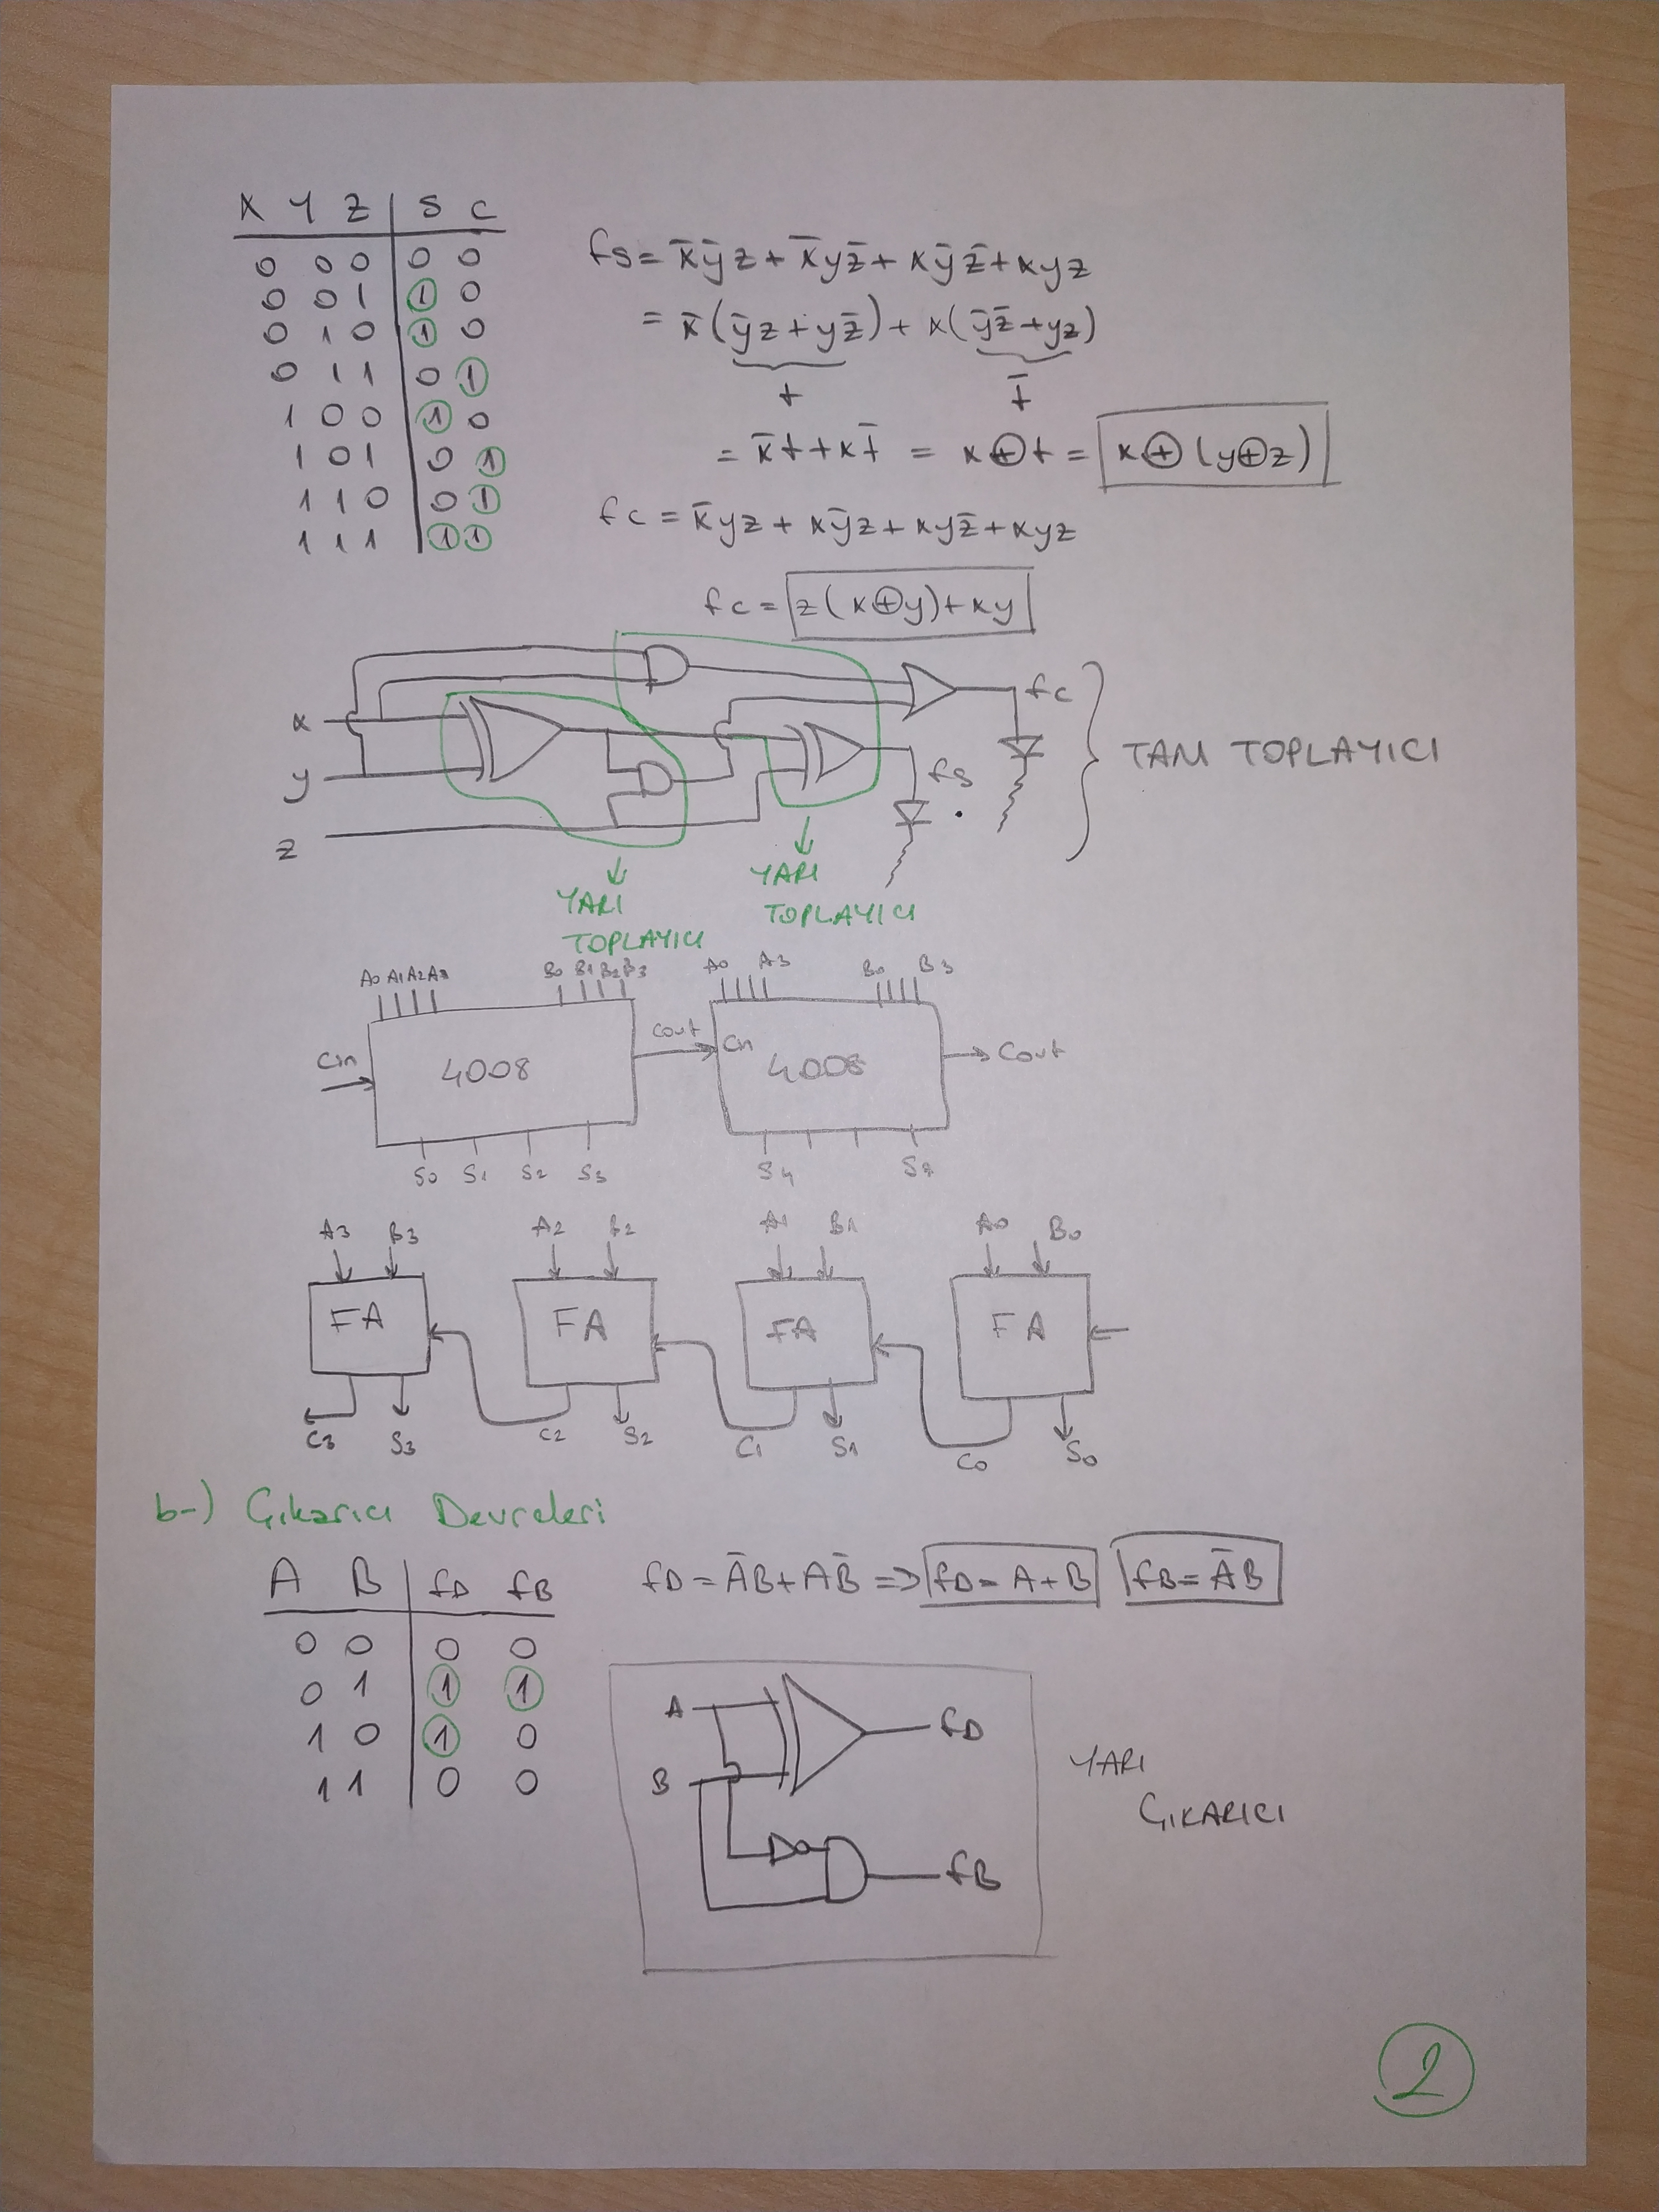 x y z | S C
0 0 0 0 0
0 0 1 1 0
0 1 0 1 0
0 1 1 0 1
1 0 0 1 0
1 0 1 0 1
1 1 0 0 1
1 1 1 1 1
fs = x̄ȳz + x̄yz̄ + xȳz̄ + xyz
= x̄(ȳz + yz̄) + x(ȳz̄ + yz)
t t̄
= x̄t + xt̄ = x⊕t = x⊕(y⊕z)
fc = x̄yz + xȳz + xyz̄ + xyz
fc = z(x⊕y) + xy
x
y
z
fs
fc
TAM TOPLAYICI
YARI
TOPLAYICI
YARI
TOPLAYICI
A0 A1 A2 A3 B0 B1 B2 B3 A0 A3 B0 B3
Cin 4008 Cout Cin 4008 Cout
S0 S1 S2 S3 S4
A3 B3 A2 B2 A1 B1 A0 B0
FA FA FA FA
C3 S3 C2 S2 C1 S1 C0 S0
b-) Çıkarıcı Devreleri
A B | fD fB
0 0 0 0
0 1 1 1
1 0 1 0
1 1 0 0
fD = ĀB + AB̄ ⇒ fD = A + B fB = ĀB
A
B
fD
fB
YARI
ÇIKARICI
2